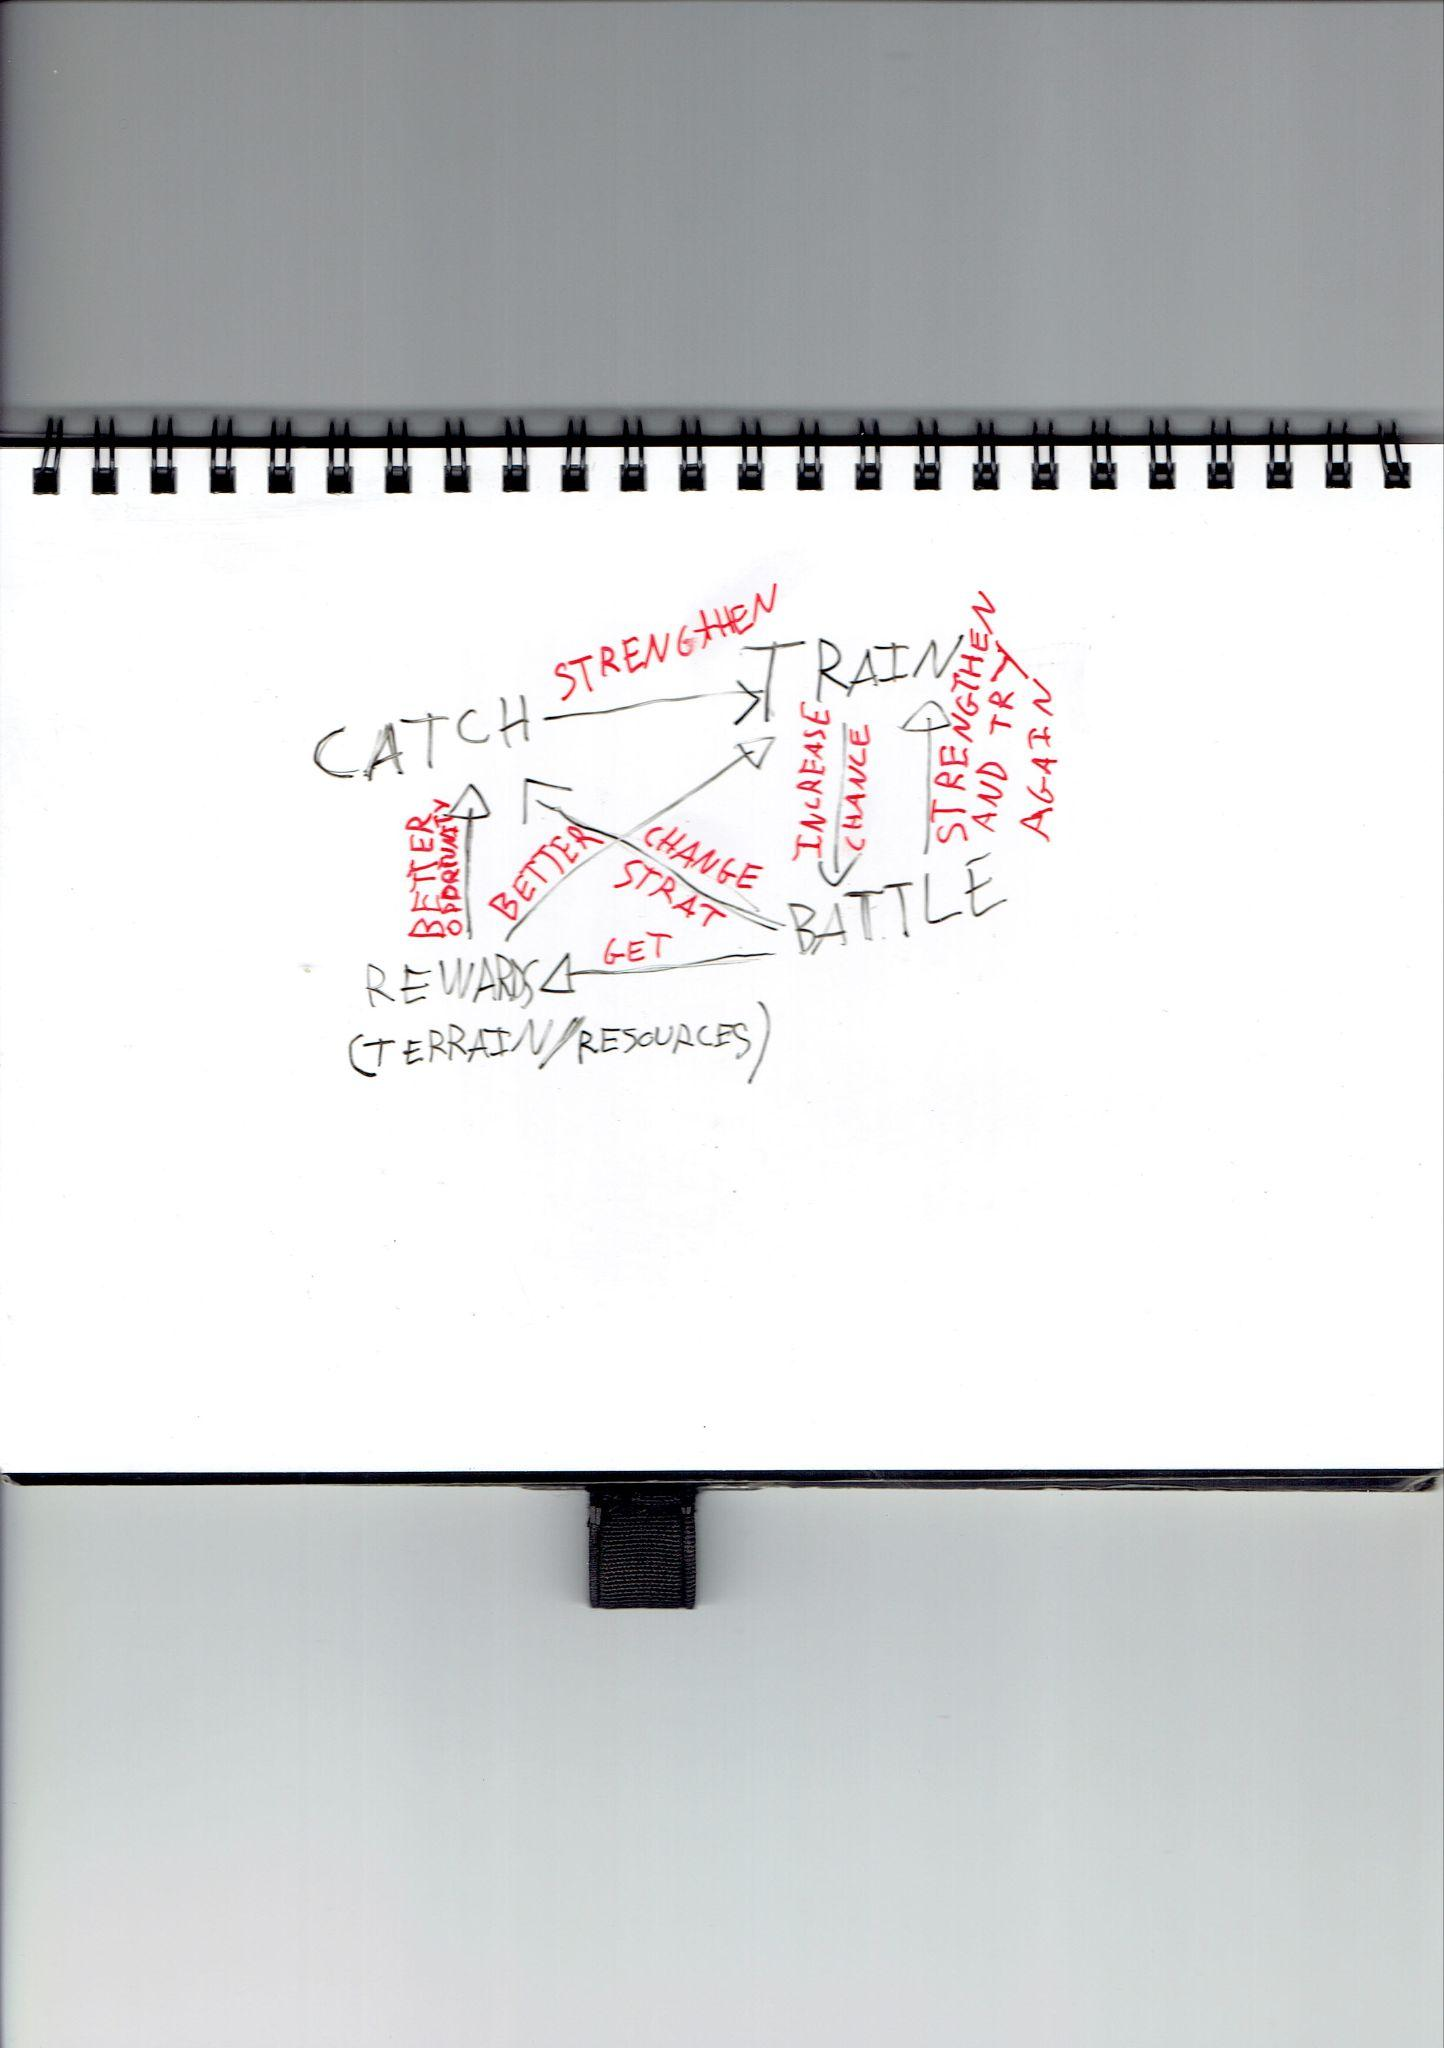 STRENGTHEN
TRAIN
CATCH
INCREASE
CHANCE
STRENGTHEN
AND TRY
AGAIN
BETTER
OPPORTUNITY
BETTER
CHANGE
STRAT
BATTLE
GET
REWARDS
(TERRAIN/RESOURCES)